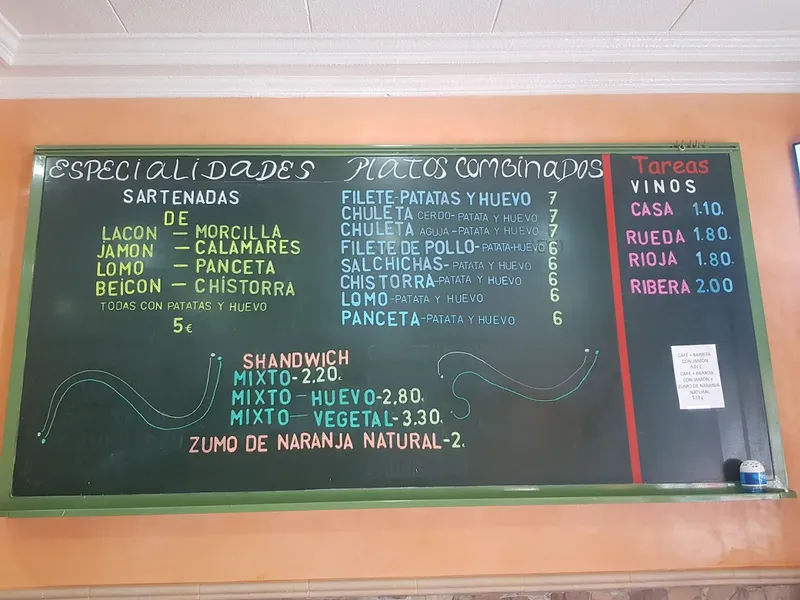 ESPECIALIDADES
SARTENADAS
DE
LACON - MORCILLA
JAMON - CALAMARES
LOMO - PANCETA
BEICON - CHISTORRA
TODAS CON PATATAS Y HUEVO
5€
PLATOS COMBINADOS
FILETE-PATATAS Y HUEVO 7
CHULETA CERDO-PATATA Y HUEVO 7
CHULETA AGUJA-PATATA Y HUEVO 7
FILETE DE POLLO-PATATA-HUEVO 6
SALCHICHAS-PATATA Y HUEVO 6
CHISTORRA-PATATA Y HUEVO 6
LOMO-PATATA Y HUEVO 6
PANCETA-PATATA Y HUEVO 6
SHANDWICH
MIXTO-2,20€
MIXTO-HUEVO-2,80€
MIXTO-VEGETAL-3,30€
ZUMO DE NARANJA NATURAL-2€
Tareas
VINOS
CASA 1.10.
RUEDA 1.80.
RIOJA 1.80.
RIBERA 2.00
CAFE + BARRITA
CON JAMON
CAFE + BARRITA
CON JAMON +
ZUMO DE NARANJA
NATURAL